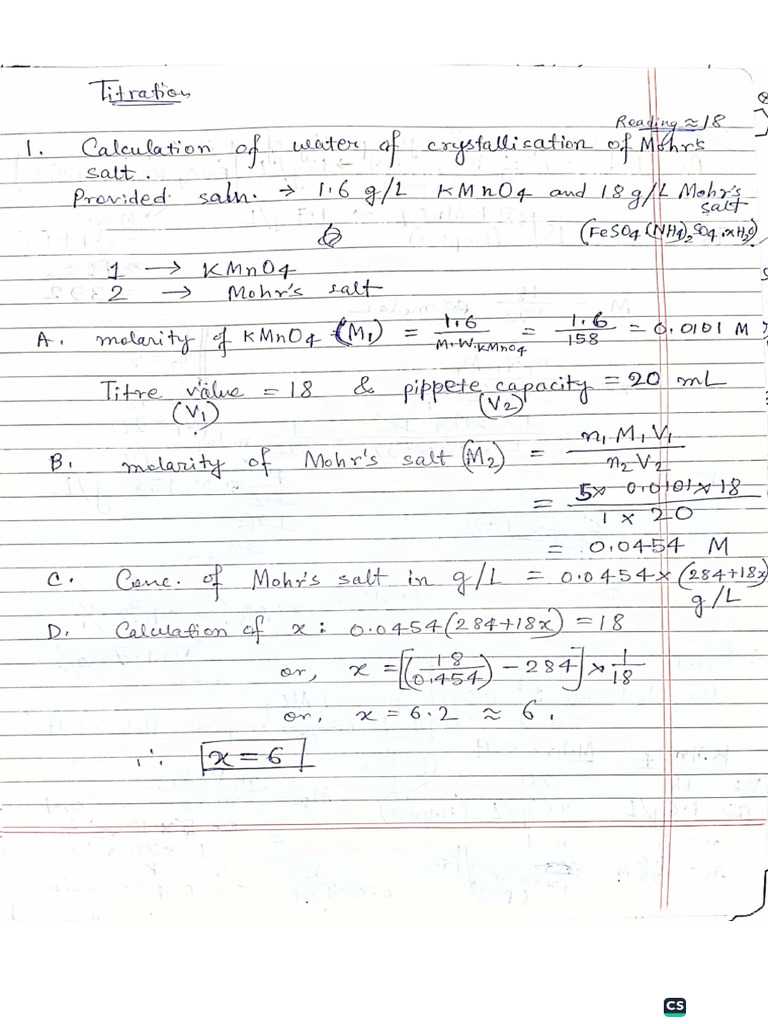 Titration
Reading ≈ 18
1. Calculation of water of crystallisation of Mohr's
salt.
Provided saln. → 1.6 g/L KMnO4 and 18 g/L Mohr's
salt
(FeSO4 (NH4)2 SO4 .xH2O)
1 → KMnO4
2 → Mohr's salt
A. molarity of KMnO4 (M1) = 1.6 / M.W. KMnO4 = 1.6 / 158 = 0.0101 M
Titre value = 18 & pippete capacity = 20 mL
(V1) (V2)
B. molarity of Mohr's salt (M2) = n1 M1 V1 / n2 V2
= 5 x 0.0101 x 18 / 1 x 20
= 0.0454 M
C. Conc. of Mohr's salt in g/L = 0.0454 x (284+18x)
g/L
D. Calculation of x : 0.0454 (284+18x) = 18
or, x = [(18 / 0.0454) - 284] x 1/18
or, x = 6.2 ≈ 6.
∴ x = 6
CS